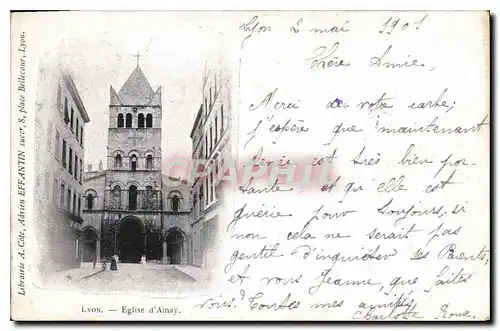 Librairie A. Côte, Adrien EFFANTIN succr, 8, place Bellecour, Lyon.
Lyon 2 mai 1901
Chère Amie,
Merci de votre carte,
j'espère que maintenant
est très bien por-
tante et qu'elle est
guérie pour toujours, si
non cela ne serait pas
gentil d'inquiéter ses Parents,
et vous Jeanne que faites
vous? Toutes mes amitiés
Charlotte Roux
Lyon. — Eglise d'Ainay.